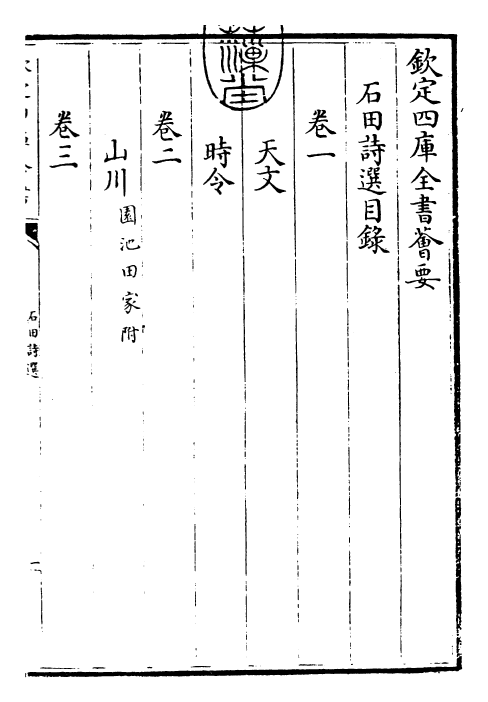 欽定四庫全書薈要
石田詩選目錄
卷一
天文
時令
卷二
山川 園池田家附
卷三
石田詩選
一